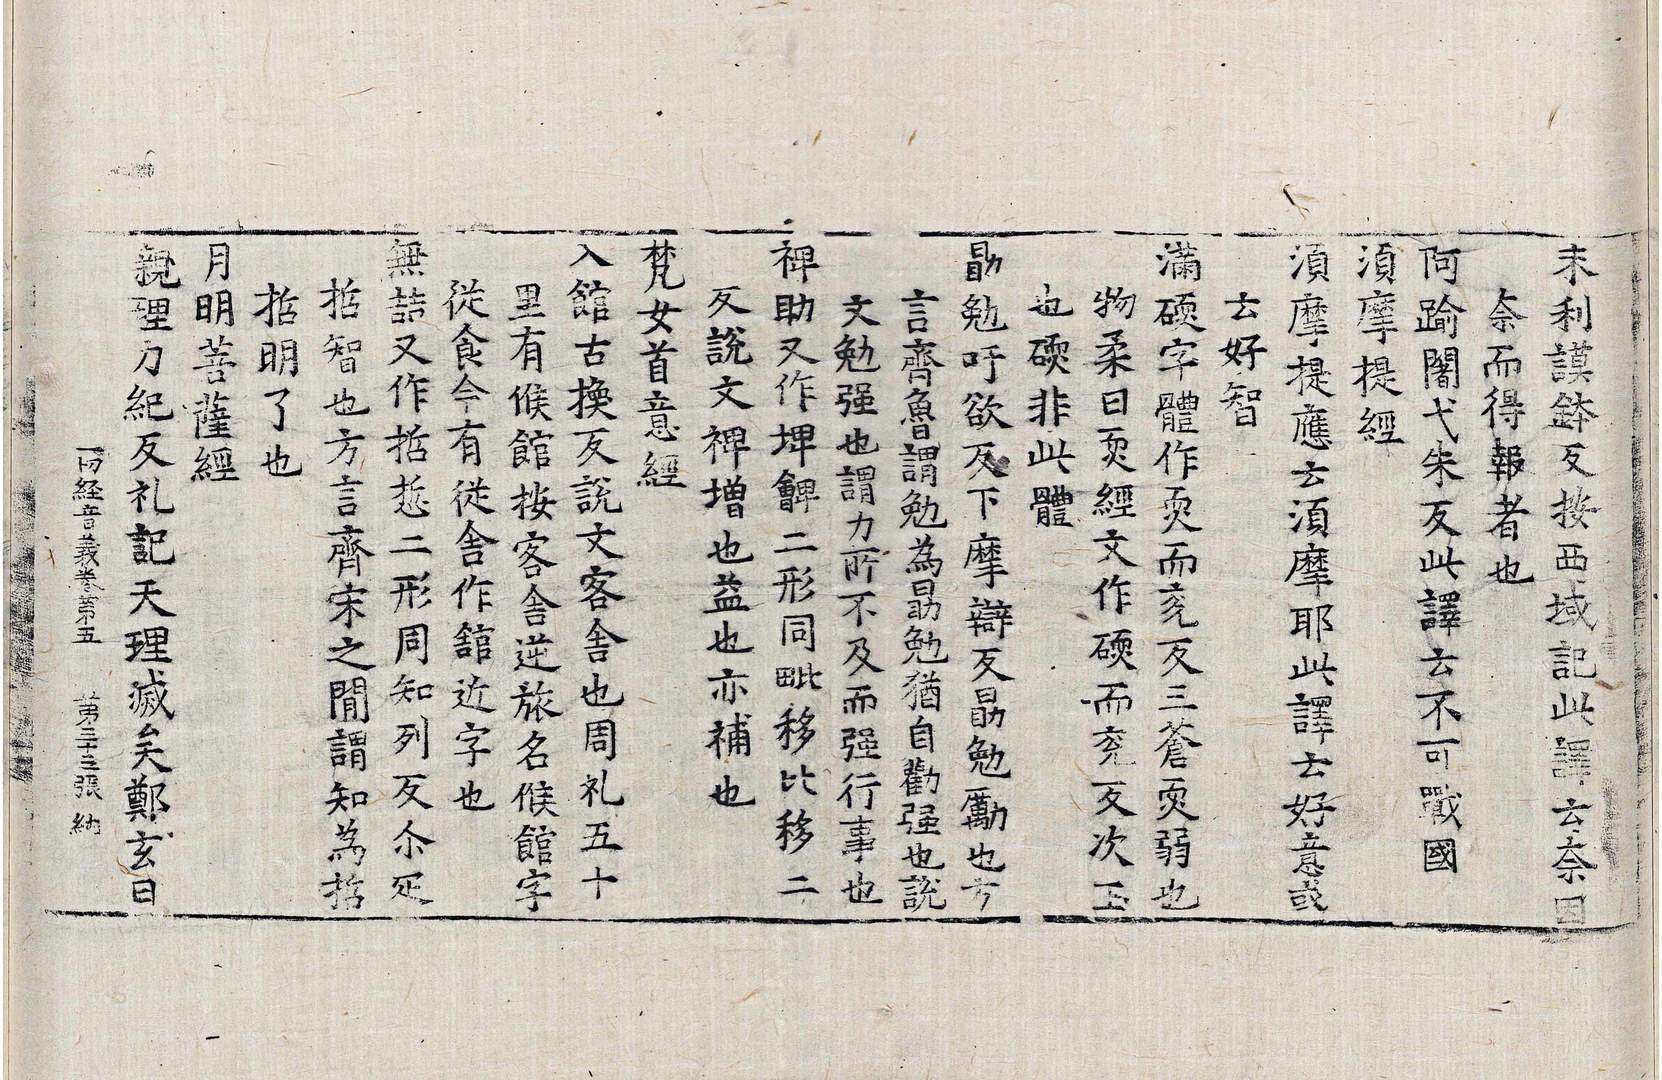 末利謨鉢反按西域記此譯云柰因
柰而得報者也
阿踰闍弋朱反此譯云不可戰國
湏摩提經
湏摩提應云湏摩耶此譯云好意或
云好智
滿碝字體作耎而兖反三蒼耎弱也
物柔曰耎經文作碝而兖反次玉
也碝非此體
勗勉吁欲反下摩辯反勗勉勵也方
言齊魯謂勉為勗勉猶自勸强也說
文勉强也謂力所不及而强行事也
裨助又作埤䚜二形同毗移比移二
反說文裨増也益也亦補也
梵女首意經
入館古換反說文客舎也周礼五十
里有候館按客舎逆旅名候館字
從食今有從舎作舘近字也
無喆又作哲悊二形同知列反尒疋
哲智也方言齊宋之閒謂知為哲
哲明了也
月明菩薩經
親理力紀反礼記天理滅矣鄭玄曰
一切経音義卷第五　第二十三張　納